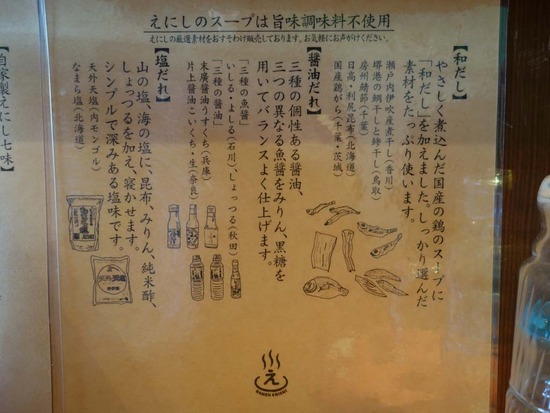 えにしのスープは旨味調味料不使用
えにしの厳選素材をおすそわけ販売しております。お気軽にお声がけください。
【和だし】
やさしく煮込んだ国産の鶏のスープに
「和だし」を加えました。しっかり選んだ
素材をたっぷり使います。
瀬戸内伊吹産煮干し(香川)
堺港の鯛干しと鯵干し(鳥取)
房州鯖節(千葉)
日高・利尻昆布(北海道)
国産鶏がら(千葉・茨城)
【醤油だれ】
三種の個性ある醤油、
三つの異なる魚醤をみりん、黒糖を
用いてバランスよく仕上げます。
「三種の魚醤」
いしる・よしる(石川)、しょっつる(秋田)
「三種の醤油」
末廣醤油うすくち(兵庫)
片上醤油こいくち・生(奈良)
【塩だれ】
山の塩、海の塩に、昆布、みりん、純米酢、
しょっつるを加え、寝かせます。
シンプルで深みある塩味です。
天外天塩(内モンゴル)
なまら塩(北海道)
【自家製えにし七味】
え
RAMEN ENISHI